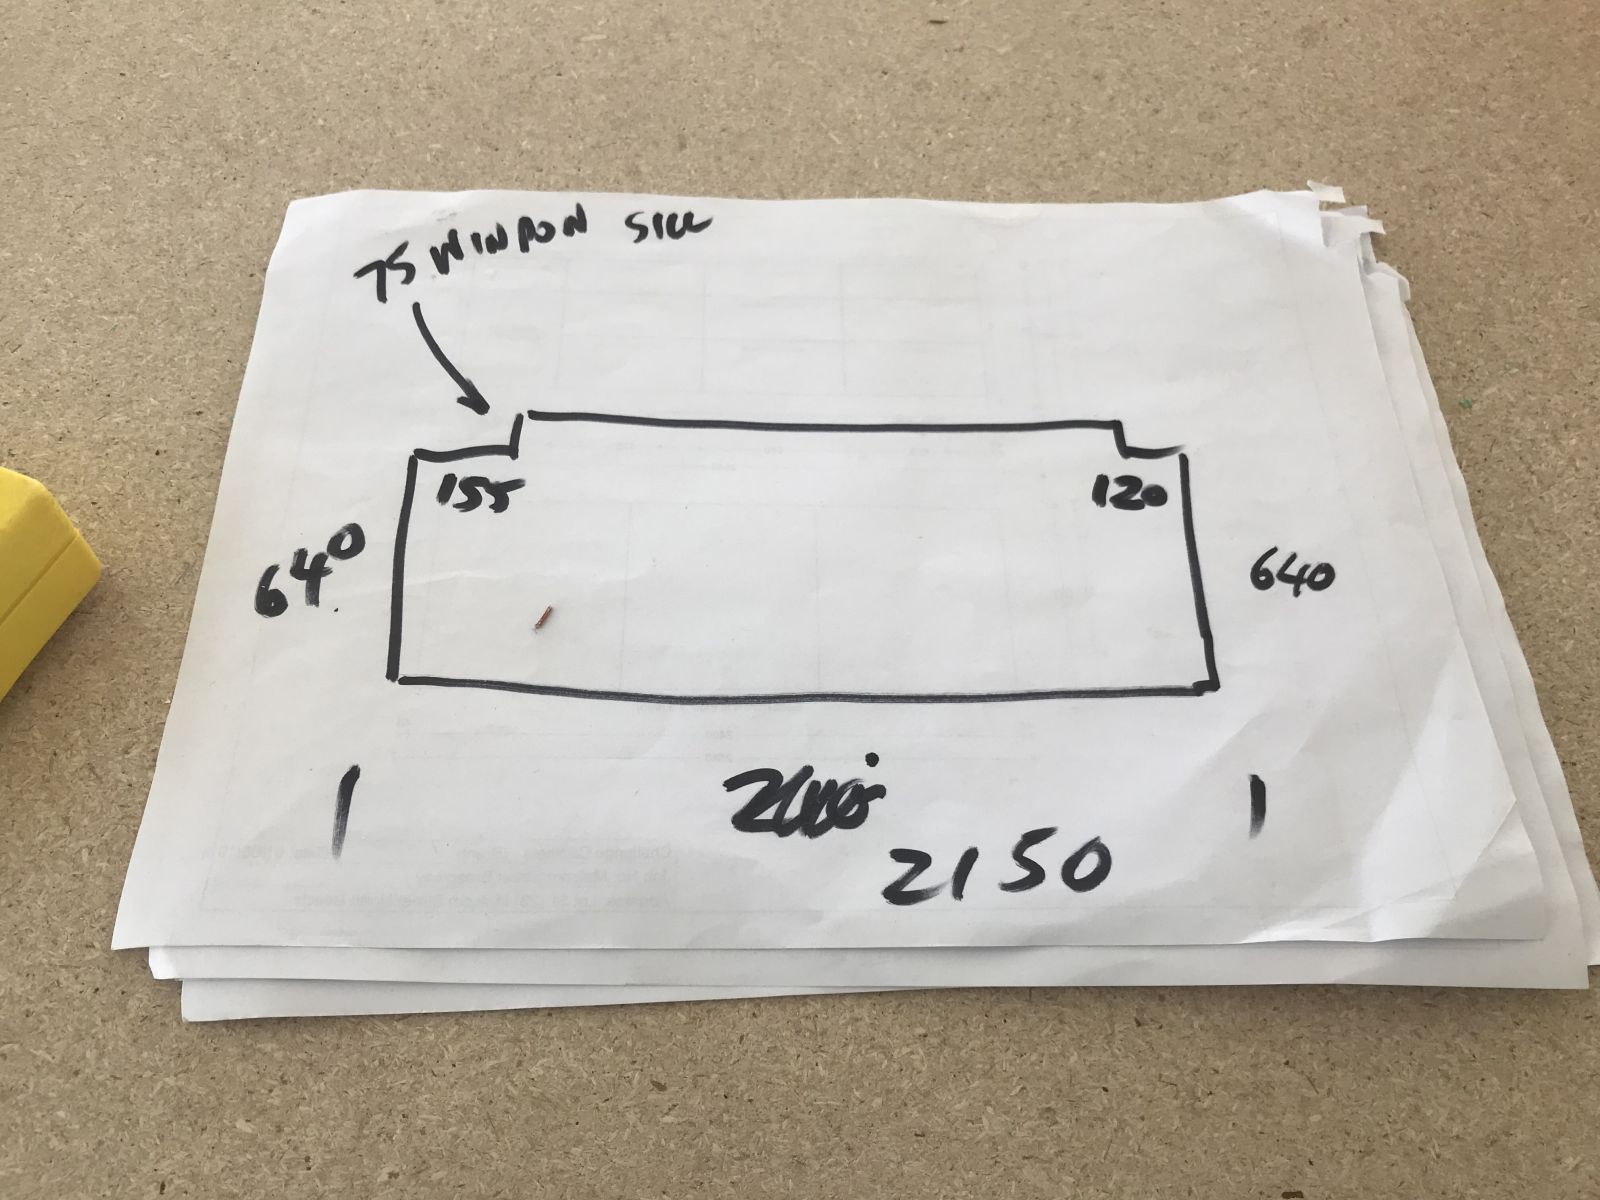 75 WINDOW SILL
155
120
640
640
2150